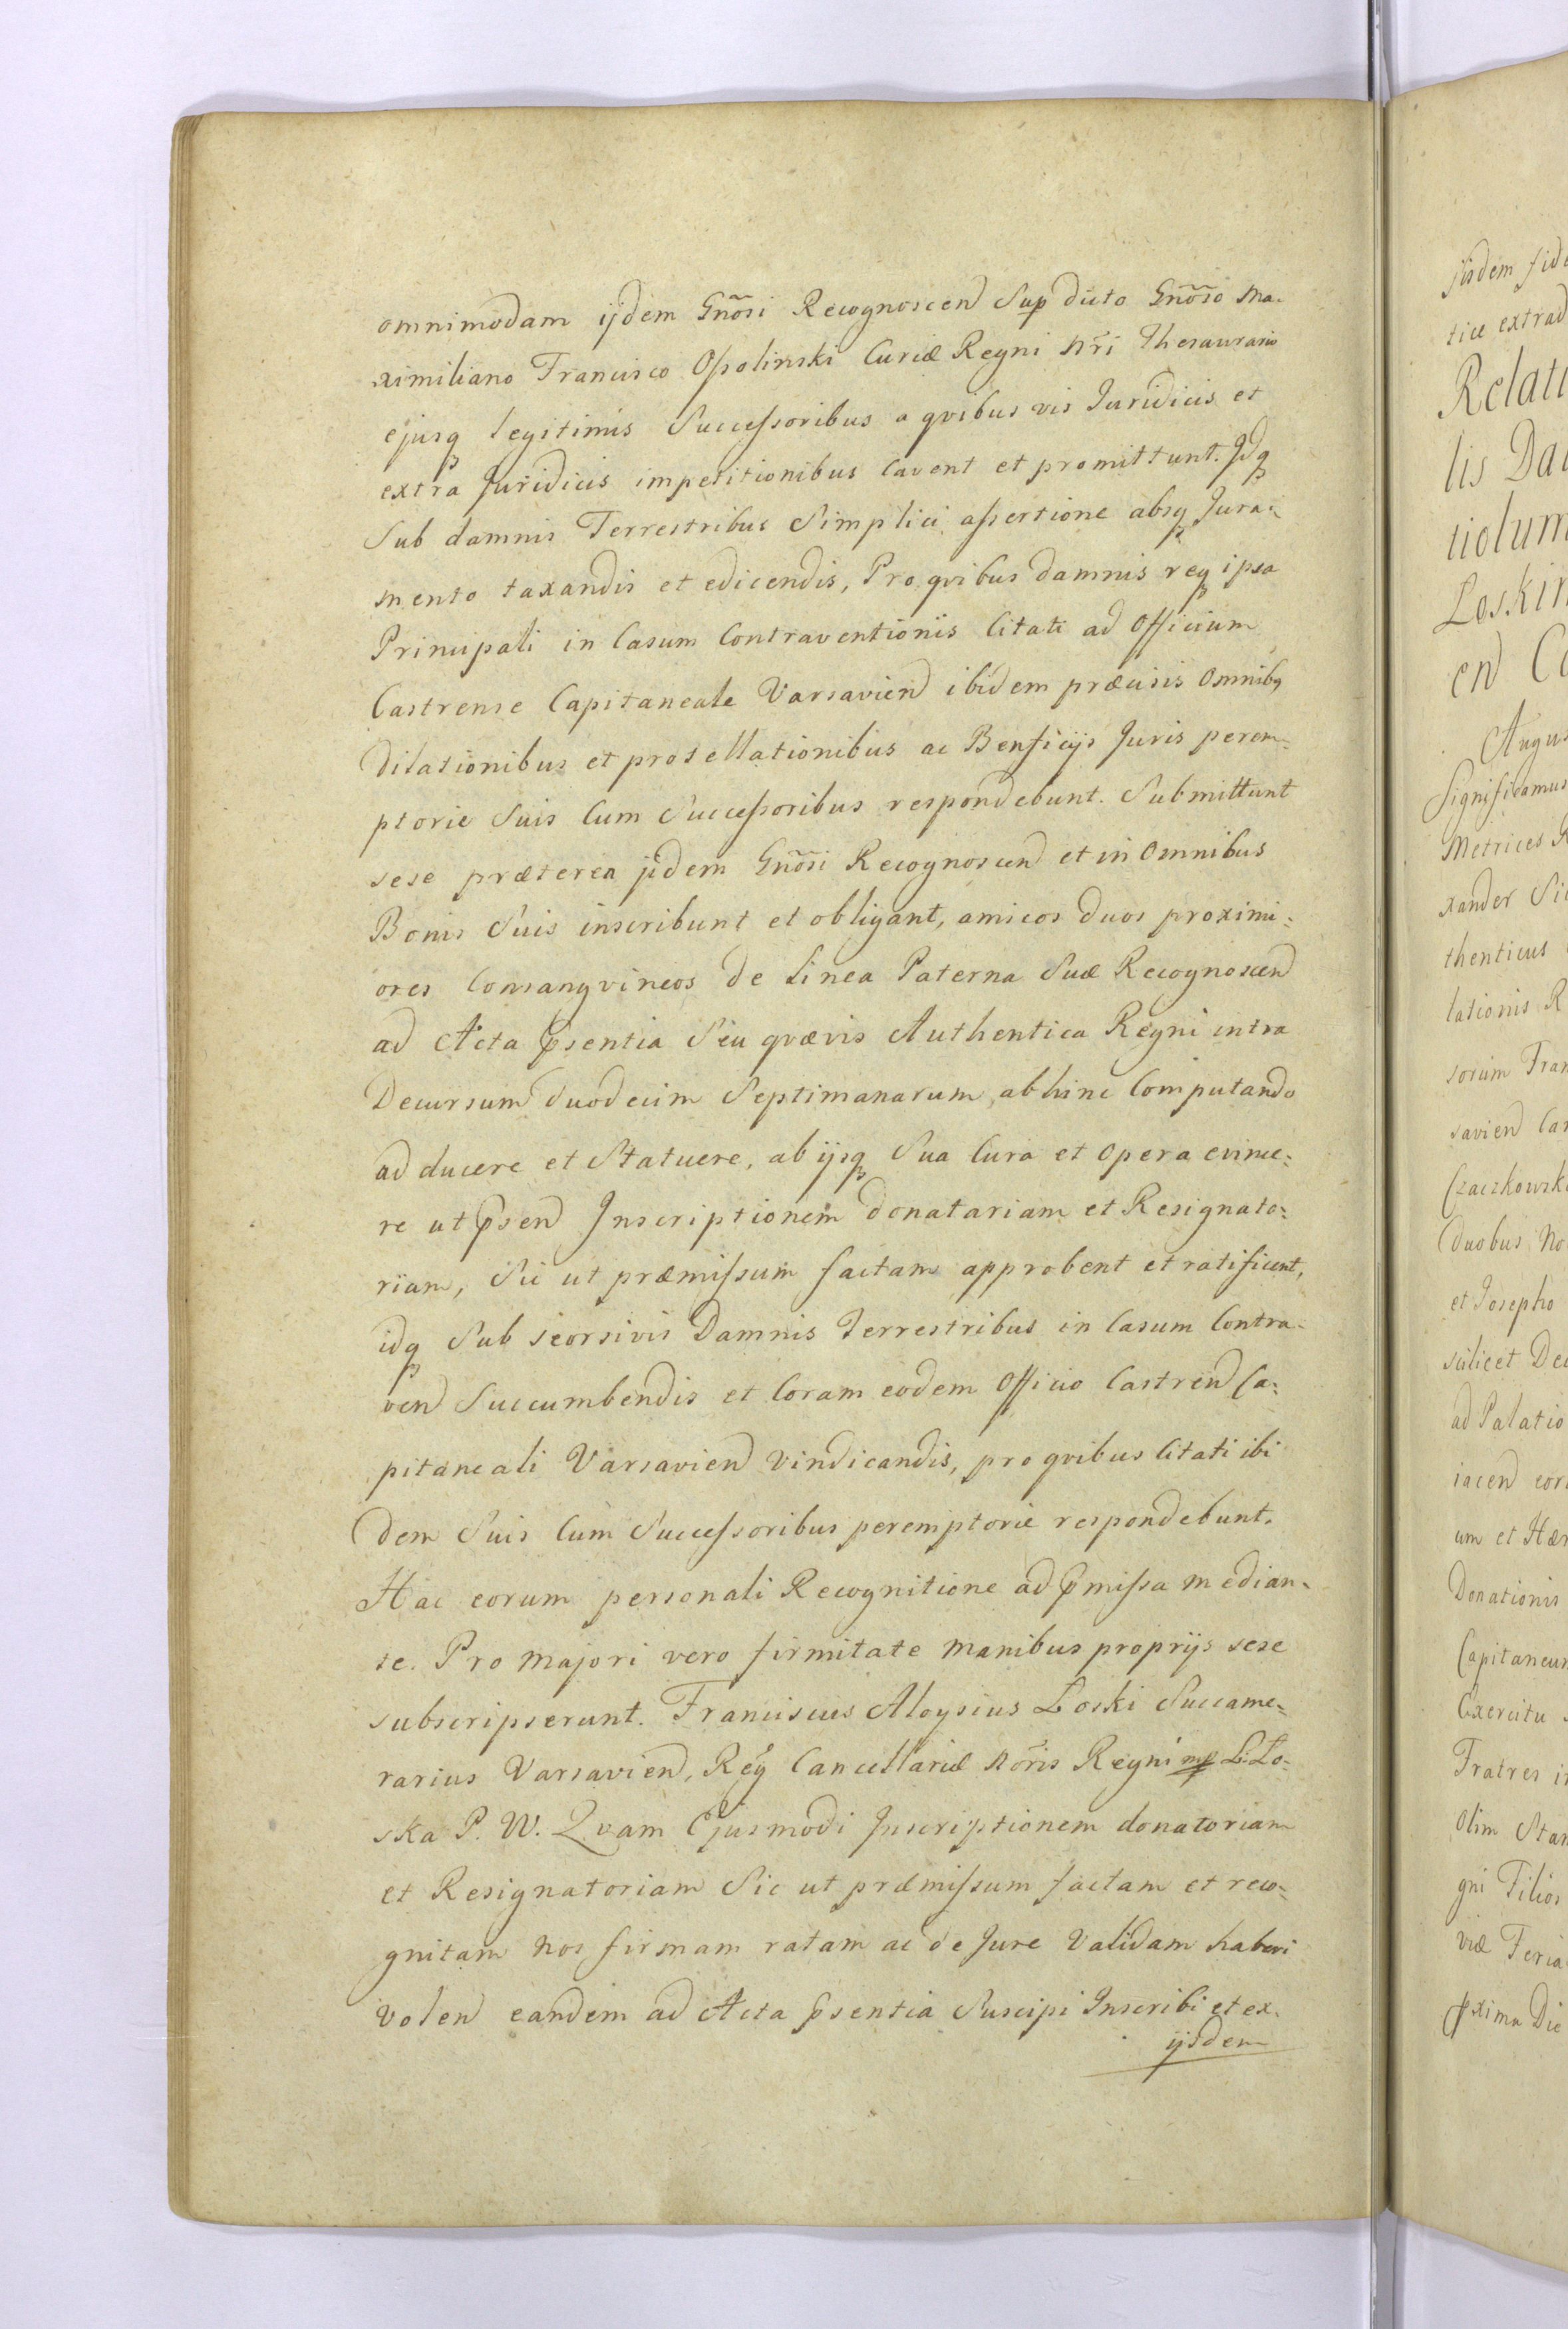 omnimodam ijdem Gnõsi Recognoscend Sup dicto Gnõso Ma-
ximiliano Francisco Opolinski Curiæ Regni Nri Thesaurario
ejusq legitimis Successoribus a qvibus vis Juridicis et
extra Juridicis impetitionibus Cavent et promittunt. Jdq
Sub damnis Terrestribus Simplici assertione absq Jura-
mento taxandis et edicendis, Pro qvibus damnis req ipsa
Principali in Casum Contraventionis Citati ad Officium
Castrense Capitaneale Varsaviend ibidem præcisis Omnibq
Dilationibus et protellationibus ac Benficijs Juris perem-
ptorie Suis Cum Successoribus respondebunt. Submittunt
sese præterea jidem Gnõsi Recognoscend et in Omnibus
Bonis Suis inscribunt et obligant, amicos duos proximi-
ores Consangvineos de Linea Paterna Suæ Recognoscend
ad Acta psentia Seu qvævis Authentica Regni intra
Decursum duodecim Septimanarum, abhinc Computando
ad ducere et Statuere, ab ijsq Sua Cura et Opera evince-
re ut psend Inscriptionem donatariam et Resignato-
riam, Sic ut præmissum factam approbent et ratificent,
idq Sub seorsivis Damnis Terrestribus in Casum Contra-
vend Succumbendis et Coram eodem Officio Castrend Ca-
pitaneali Varsaviend vindicandis, pro qvibus Citati ibi
dem Suis Cum Successoribus peremptorie respondebunt.
Hac eorum personali Recognitione ad pmissa median-
te. Pro majori vero firmitate manibus proprijs sese
subscripserunt. Franciscus Aloysius Loski Succame-
rarius Varsaviend, Reg Cancellariæ Noris Regni mp L: Lo-
ska P. W. Qvam Ejusmodi Inscriptionem donatoriam
et Resignatoriam Sic ut præmissum factam et reco-
gnitam nos firmam ratam ac de Jure Validam haberi
volend eandem ad Acta psentia Suscipi Inscribi et ex-
ijsdem
jisdem fide
tice extrad
Relati
lis Da
tiolum
Loskin
en Co
Augus
Significamus
Metrices R
xander Si
thenticus
lationis R
sorum Fran
saviend Ca
Czaczkowsk
duobus No
et Josepho
scilicet De
ad Palatio
iacend cor
um et Hær
Donationis
Capitaneu
Exercitu
Fratres i
Olim Sta
gni Filio
viæ Feria
pxima Die